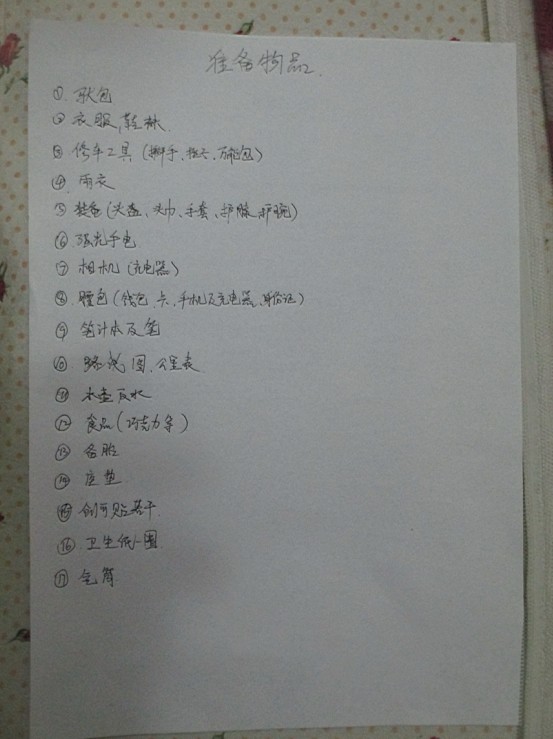 准备物品
① 驮包
② 衣服,鞋袜
③ 修车工具(搬手、起子、万能包)
④ 雨衣
⑤ 装备(头盔、头巾、手套、护膝、护腕)
⑥ 强光手电
⑦ 相机(充电器)
⑧ 腰包(钱包、卡、手机及充电器、身份证)
⑨ 笔计本及笔
⑩ 路线图、公里表
⑪ 水壶及水
⑫ 食品(巧克力等)
⑬ 备胎
⑭ 座垫
⑮ 创可贴若干
⑯ 卫生纸一圈
⑰ 气筒